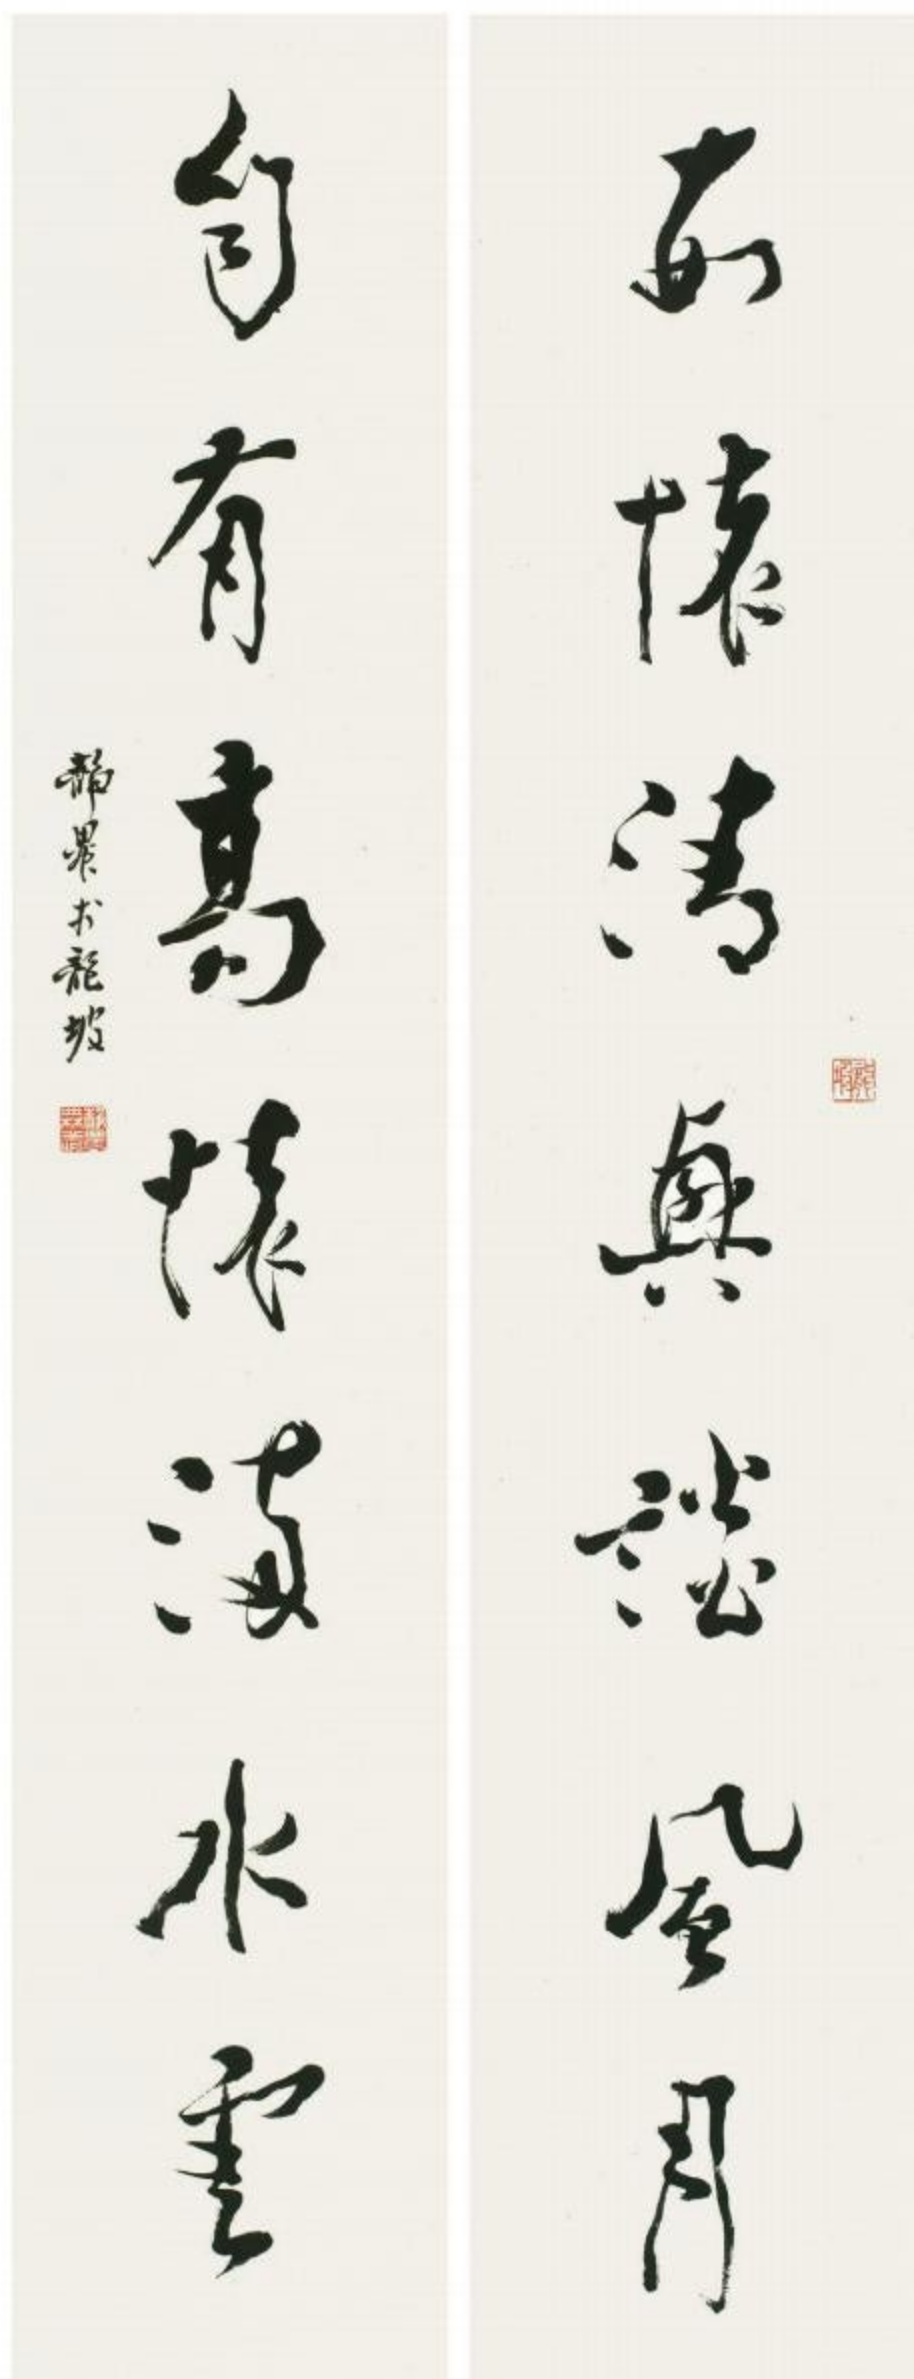 懷清興談風月
自有高懷滿水雲
靜農於龍坡